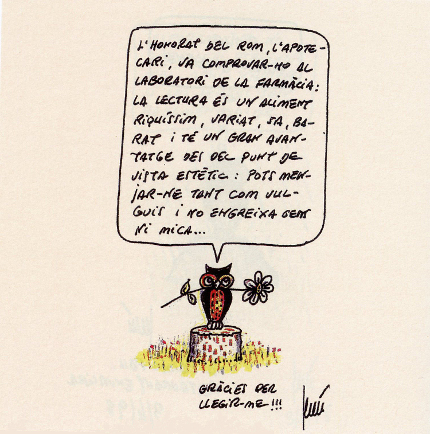 L'HONORAT DEL ROM, L'APOTE-
CARI, VA COMPROVAR-HO AL
LABORATORI DE LA FARMÀCIA:
LA LECTURA ÉS UN ALIMENT
RIQUÍSSIM, VARIAT, SA, BA-
RAT I TÉ UN GRAN AVAN-
TATGE DES DEL PUNT DE
VISTA ESTÈTIC: POTS MEN-
JAR-NE TANT COM VUL-
GUIS I NO ENGREIXA GENS
NI MICA...
GRÀCIES PER
LLEGIR-ME!!!